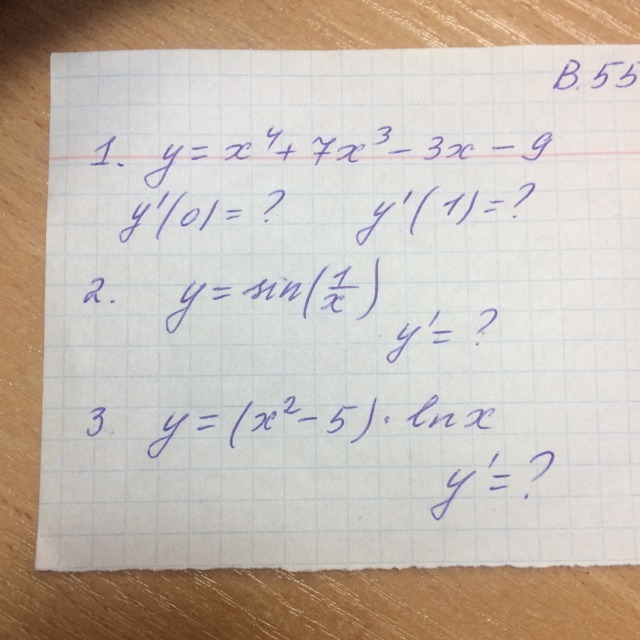 В.55
1. y = x⁴ + 7x³ − 3x − 9
y'(0) = ? y'(1) = ?
2. y = sin(1/x)
y' = ?
3. y = (x² − 5) · ln x
y' = ?